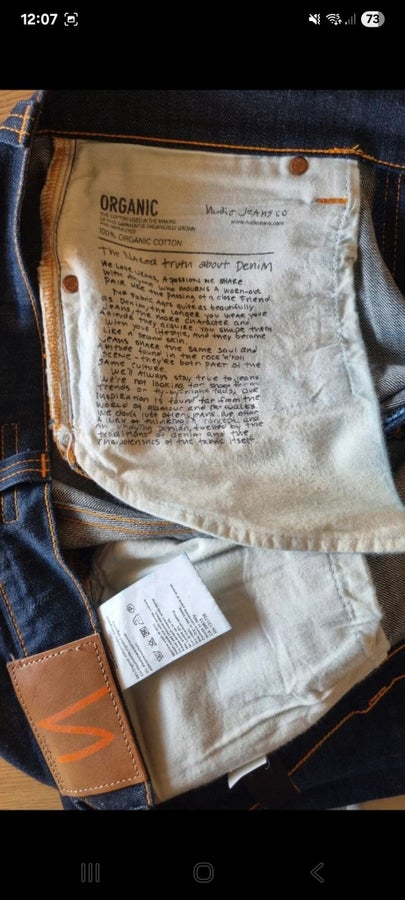 12:07
73
ORGANIC
THE COTTON USED IN THE MAKING
OF THIS GARMENT IS ORGANICALLY GROWN
AND HARVESTED
100% ORGANIC COTTON
Nudie Jeans co
www.nudiejeans.com
The Naked truth about Denim
We love jeans, a passion we share
with anyone, who mourns a worn-out
pair like the passing of a close friend.
No fabric ages quite as beautifully
as Denim. The longer you wear your
jeans the more character and
attitude they acquire. You shape them
with your lifestyle, and they become
like a second skin.
Jeans share the same soul and
attitude found in the rock'n'roll
scene - they're both part of the
same culture.
We'll always stay true to jeans.
We're not looking for short term
trends or
inspiration is found far from the
world of glamour and catwalks.
We don't just offer jeans, we offer
a way of thinking, a concept, and
an undying passion, fuelled by the
traditions of denim and the
characteristics of the fabric itself.